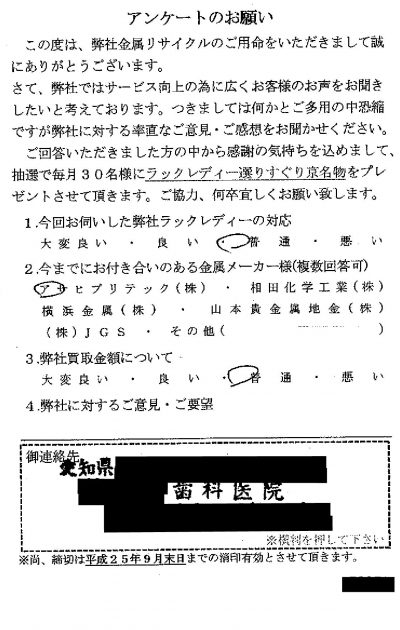 アンケートのお願い
この度は、弊社金属リサイクルのご用命をいただきまして誠
にありがとうございます。
さて、弊社ではサービス向上の為に広くお客様のお声をお聞き
したいと考えております。つきましては何かとご多用の中恐縮
ですが弊社に対する率直なご意見・ご感想をお聞かせください。
ご回答いただきました方の中から感謝の気持ちを込めまして、
抽選で毎月30名様にラックレディー選りすぐり京名物をプレ
ゼントさせて頂きます。ご協力、何卒宜しくお願い致します。
1.今回お伺いした弊社ラックレディーの対応
大変良い・良い・普通・悪い
2.今までにお付き合いのある金属メーカー様(複数回答可)
アサヒプリテック(株)・相田化学工業(株)
横浜金属(株)・山本貴金属地金(株)
(株)JGS・その他( )
3.弊社買取金額について
大変良い・良い・普通・悪い
4.弊社に対するご意見・ご要望
御連絡先
愛知県
歯科医院
※横判を押して下さい
※尚、締切は平成25年9月末日までの消印有効とさせて頂きます。